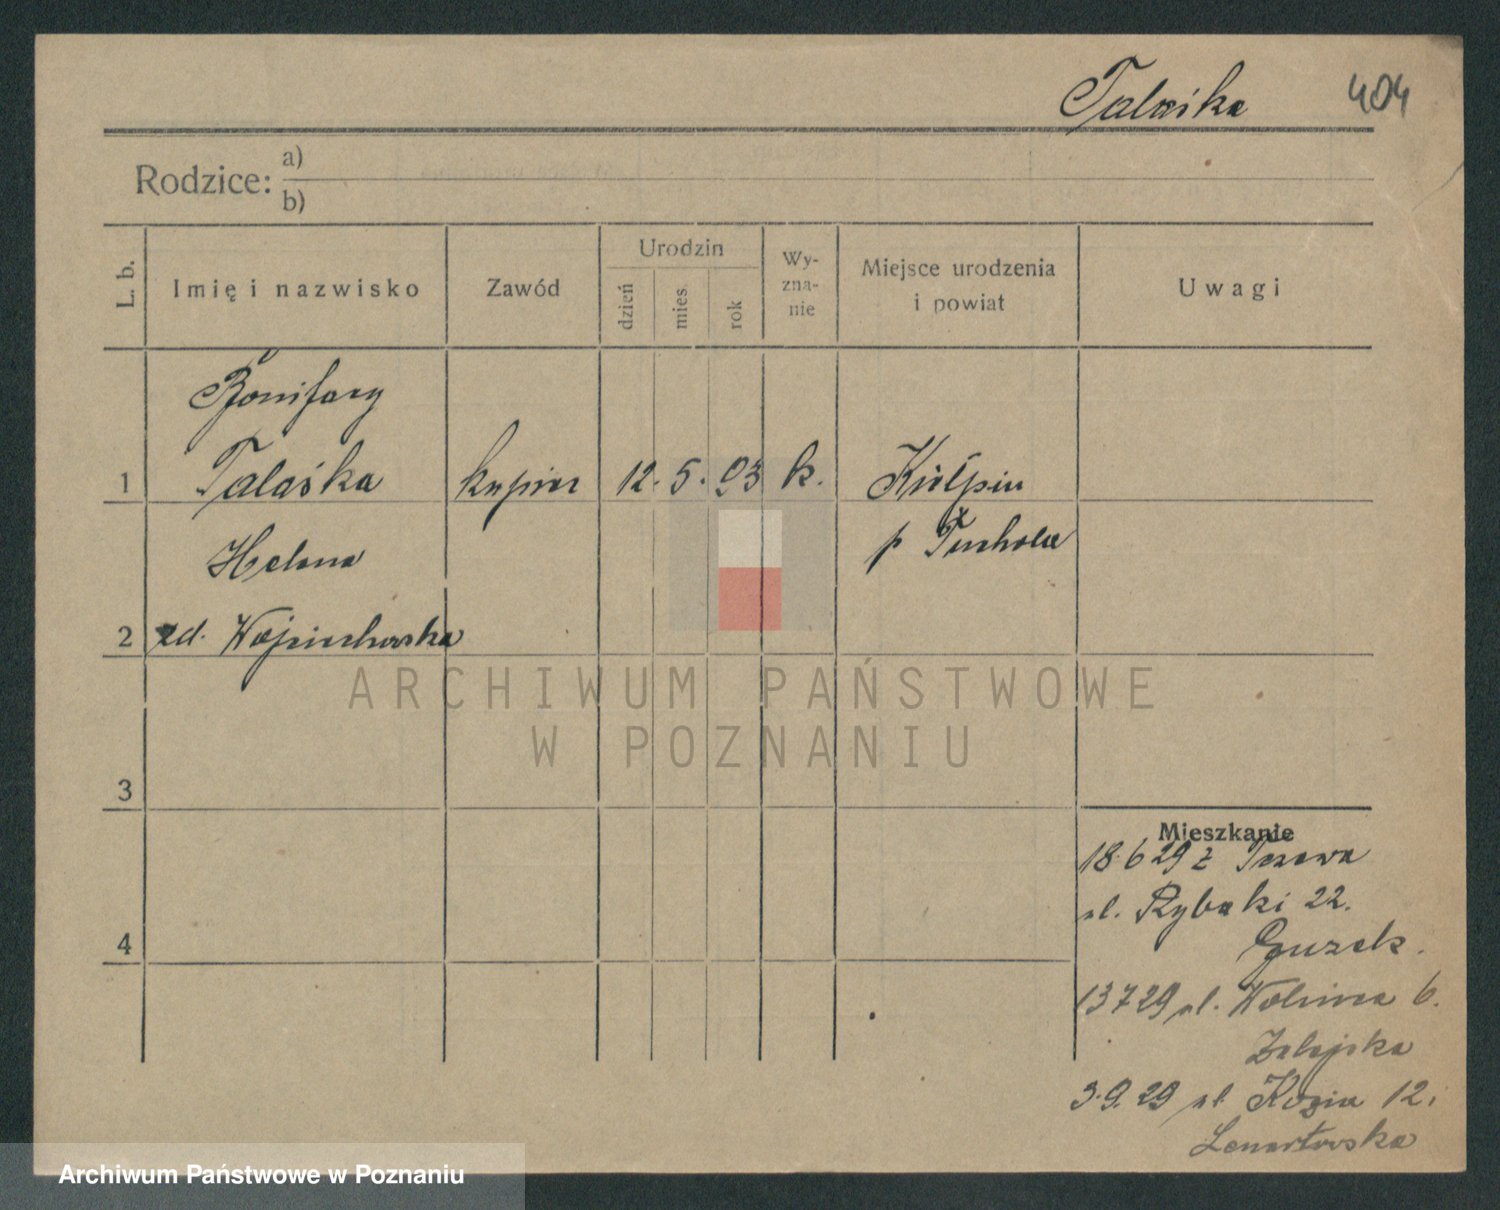 Talaśka 404
Rodzice: a)
b)
L. b. Imię i nazwisko Zawód Urodzin dzień mies. rok Wy-zna-nie Miejsce urodzenia i powiat Uwagi
Bonifacy
1 Talaśka kupiec 12. 5. 93 k. Kiełpin
Helena p Tuchola
2 zd. Wojciechowska
ARCHIWUM PAŃSTWOWE
W POZNANIU
3
Mieszkanie
18.6 29 z Tczewa
ul. Rybaki 22.
4
Guzek.
13 7 29 ul. Wolnica 6.
3.9.29 ul Kozia 12.
Lenartowska
Archiwum Państwowe w Poznaniu